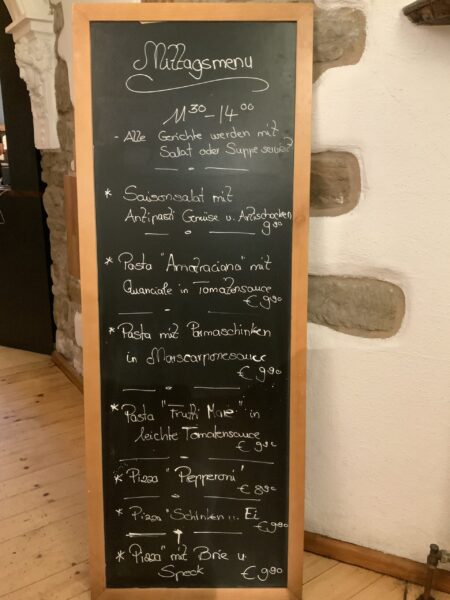 Mittagsmenu
11³⁰-14⁰⁰
- Alle Gerichte werden mit
Salat oder Suppe serviert
* Saisonsalat mit
Antipasti Gemüse u. Artischocken
9⁹⁰
* Pasta "Amatraciana" mit
Guanciale in Tomatensauce
€ 9⁹⁰
* Pasta mit Parmaschinken
in Marscarponesauce
€ 9⁹⁰
* Pasta "Frutti Mare" in
leichte Tomatensauce
€ 9⁹⁰
* Pizza "Piepperoni"
€ 8⁹⁰
* Pizza "Schinken u. Ei
€ 9⁹⁰
* Pizza" mit Brie u
Speck € 9⁹⁰